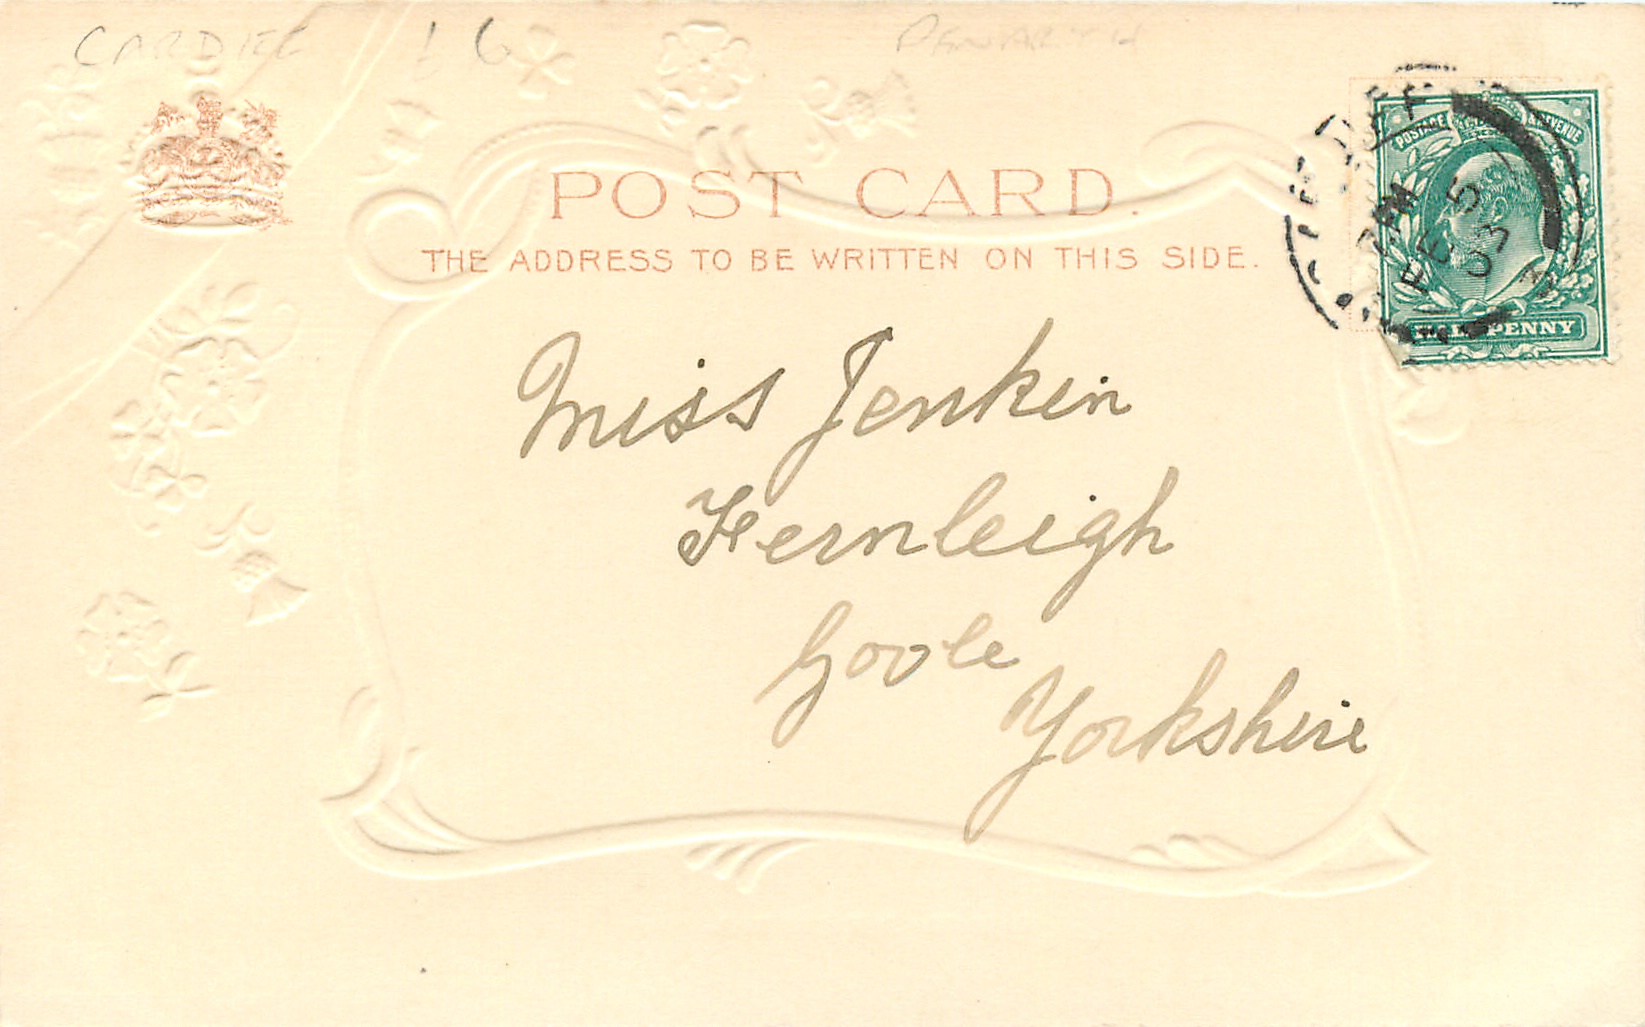 CARDIFF £6 PENARTH
POST CARD.
THE ADDRESS TO BE WRITTEN ON THIS SIDE.
POSTAGE & REVENUE
HALFPENNY
Miss Jenkin
Fernleigh
Goole
Yorkshire